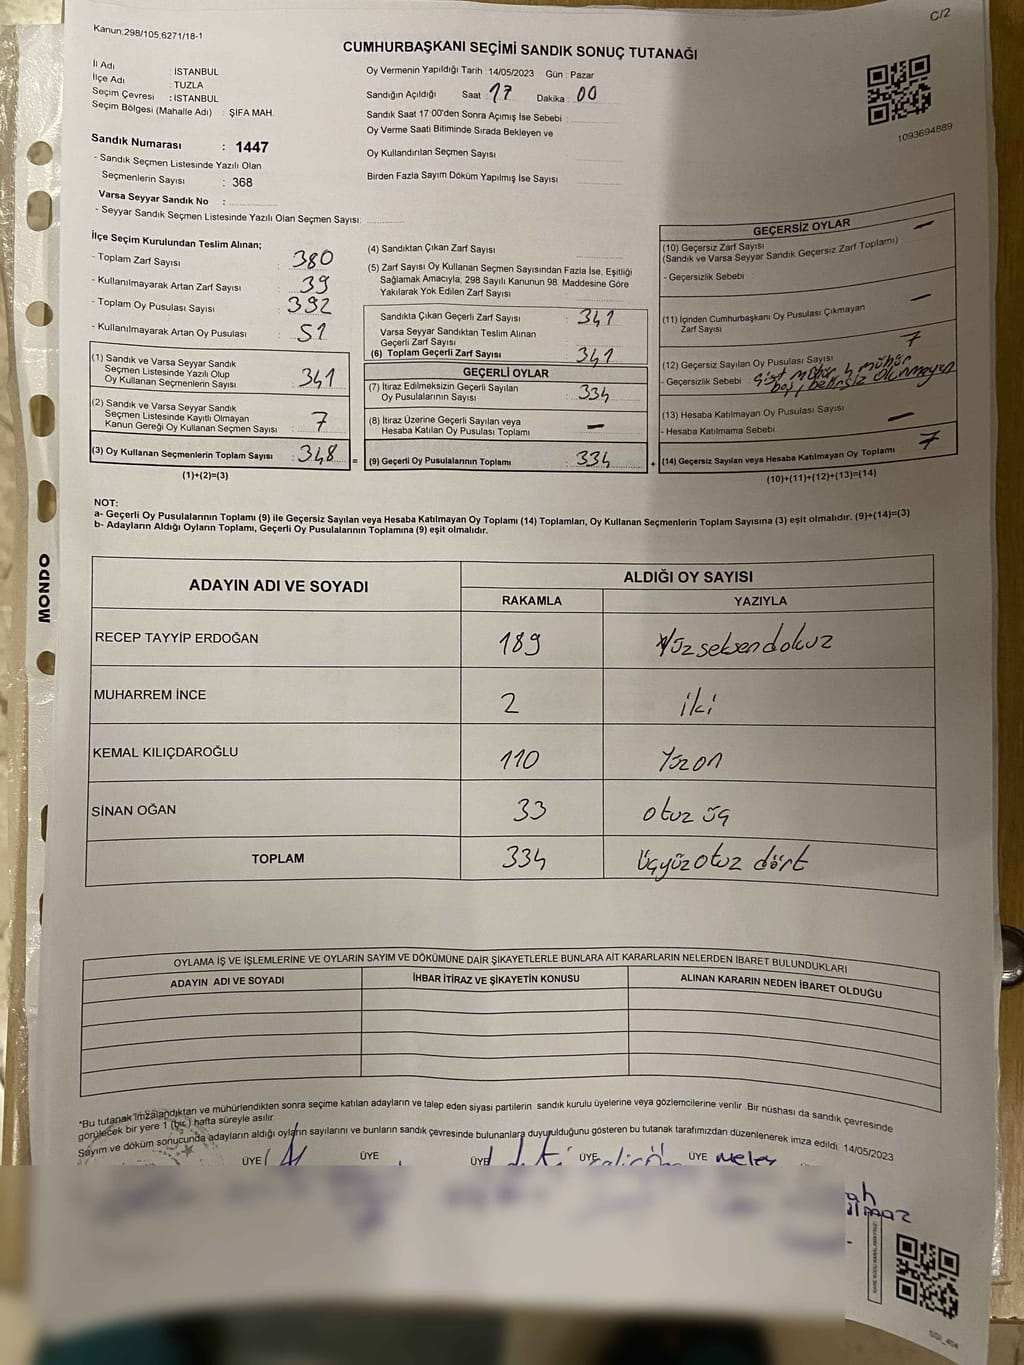 C/2
Kanun:298/105,6271/18-1
CUMHURBAŞKANI SEÇİMİ SANDIK SONUÇ TUTANAĞI
İl Adı : İSTANBUL
İlçe Adı : TUZLA
Seçim Çevresi : İSTANBUL
Seçim Bölgesi (Mahalle Adı) : ŞİFA MAH.
Oy Vermenin Yapıldığı Tarih :14/05/2023 Gün : Pazar
Sandığın Açıldığı Saat : 17 Dakika : 00
Sandık Saat 17:00'den Sonra Açımış İse Sebebi :
Oy Verme Saati Bitiminde Sırada Bekleyen ve
Oy Kullandırılan Seçmen Sayısı
Birden Fazla Sayım Döküm Yapılmış İse Sayısı
1093694889
Sandık Numarası : 1447
- Sandık Seçmen Listesinde Yazılı Olan
Seçmenlerin Sayısı : 368
Varsa Seyyar Sandık No :
- Seyyar Sandık Seçmen Listesinde Yazılı Olan Seçmen Sayısı:
İlçe Seçim Kurulundan Teslim Alınan;
- Toplam Zarf Sayısı : 380
- Kullanılmayarak Artan Zarf Sayısı : 39
- Toplam Oy Pusulası Sayısı : 392
- Kullanılmayarak Artan Oy Pusulası : 51
(1) Sandık ve Varsa Seyyar Sandık
Seçmen Listesinde Yazılı Olup
Oy Kullanan Seçmenlerin Sayısı : 341
(2) Sandık ve Varsa Seyyar Sandık
Seçmen Listesinde Kayıtlı Olmayan
Kanun Gereği Oy Kullanan Seçmen Sayısı : 7
(3) Oy Kullanan Seçmenlerin Toplam Sayısı : 348 =
(1)+(2)=(3)
(4) Sandıktan Çıkan Zarf Sayısı
(5) Zarf Sayısı Oy Kullanan Seçmen Sayısından Fazla İse, Eşitliği
Sağlamak Amacıyla; 298 Sayılı Kanunun 98. Maddesine Göre
Yakılarak Yok Edilen Zarf Sayısı
Sandıkta Çıkan Geçerli Zarf Sayısı : 341
Varsa Seyyar Sandıktan Teslim Alınan
Geçerli Zarf Sayısı
(6) Toplam Geçerli Zarf Sayısı : 341
GEÇERLİ OYLAR
(7) İtiraz Edilmeksizin Geçerli Sayılan
Oy Pusulalarının Sayısı : 334
(8) İtiraz Üzerine Geçerli Sayılan veya
Hesaba Katılan Oy Pusulası Toplamı : –
(9) Geçerli Oy Pusulalarının Toplamı : 334 +
GEÇERSİZ OYLAR
(10) Geçersiz Zarf Sayısı –
(Sandık ve Varsa Seyyar Sandık Geçersiz Zarf Toplamı)
- Geçersizlik Sebebi :
(11) İçinden Cumhurbaşkanı Oy Pusulası Çıkmayan –
Zarf Sayısı
(12) Geçersiz Sayılan Oy Pusulası Sayısı 7
- Geçersizlik Sebebi : çift mühür, mühür
boş, belirsiz olunmayan
(13) Hesaba Katılmayan Oy Pusulası Sayısı –
- Hesaba Katılmama Sebebi :
(14) Geçersiz Sayılan veya Hesaba Katılmayan Oy Toplamı 7
(10)+(11)+(12)+(13)=(14)
NOT:
a- Geçerli Oy Pusulalarının Toplamı (9) ile Geçersiz Sayılan veya Hesaba Katılmayan Oy Toplamı (14) Toplamları, Oy Kullanan Seçmenlerin Toplam Sayısına (3) eşit olmalıdır. (9)+(14)=(3)
b- Adayların Aldığı Oyların Toplamı, Geçerli Oy Pusulalarının Toplamına (9) eşit olmalıdır.
MONDO
ADAYIN ADI VE SOYADI ALDIĞI OY SAYISI
RAKAMLA YAZIYLA
RECEP TAYYİP ERDOĞAN 189 Yüzseksendokuz
MUHARREM İNCE 2 iki
KEMAL KILIÇDAROĞLU 110 Yüzon
SİNAN OĞAN 33 otuz üç
TOPLAM 334 Üçyüzotuz dört
OYLAMA İŞ VE İŞLEMLERİNE VE OYLARIN SAYIM VE DÖKÜMÜNE DAİR ŞİKAYETLERLE BUNLARA AİT KARARLARIN NELERDEN İBARET BULUNDUKLARI
ADAYIN ADI VE SOYADI İHBAR İTİRAZ VE ŞİKAYETİN KONUSU ALINAN KARARIN NEDEN İBARET OLDUĞU
*Bu tutanak imzalandıktan ve mühürlendikten sonra seçime katılan adayların ve talep eden siyasi partilerin sandık kurulu üyelerine veya gözlemcilerine verilir. Bir nüshası da sandık çevresinde
görülecek bir yere 1 (bir) hafta süreyle asılır.
Sayım ve döküm sonucunda adayların aldığı oyların sayılarını ve bunların sandık çevresinde bulunanlara duyurulduğunu gösteren bu tutanak tarafımızdan düzenlenerek imza edildi. 14/05/2023
ÜYE ÜYE ÜYE ÜYE ÜYE